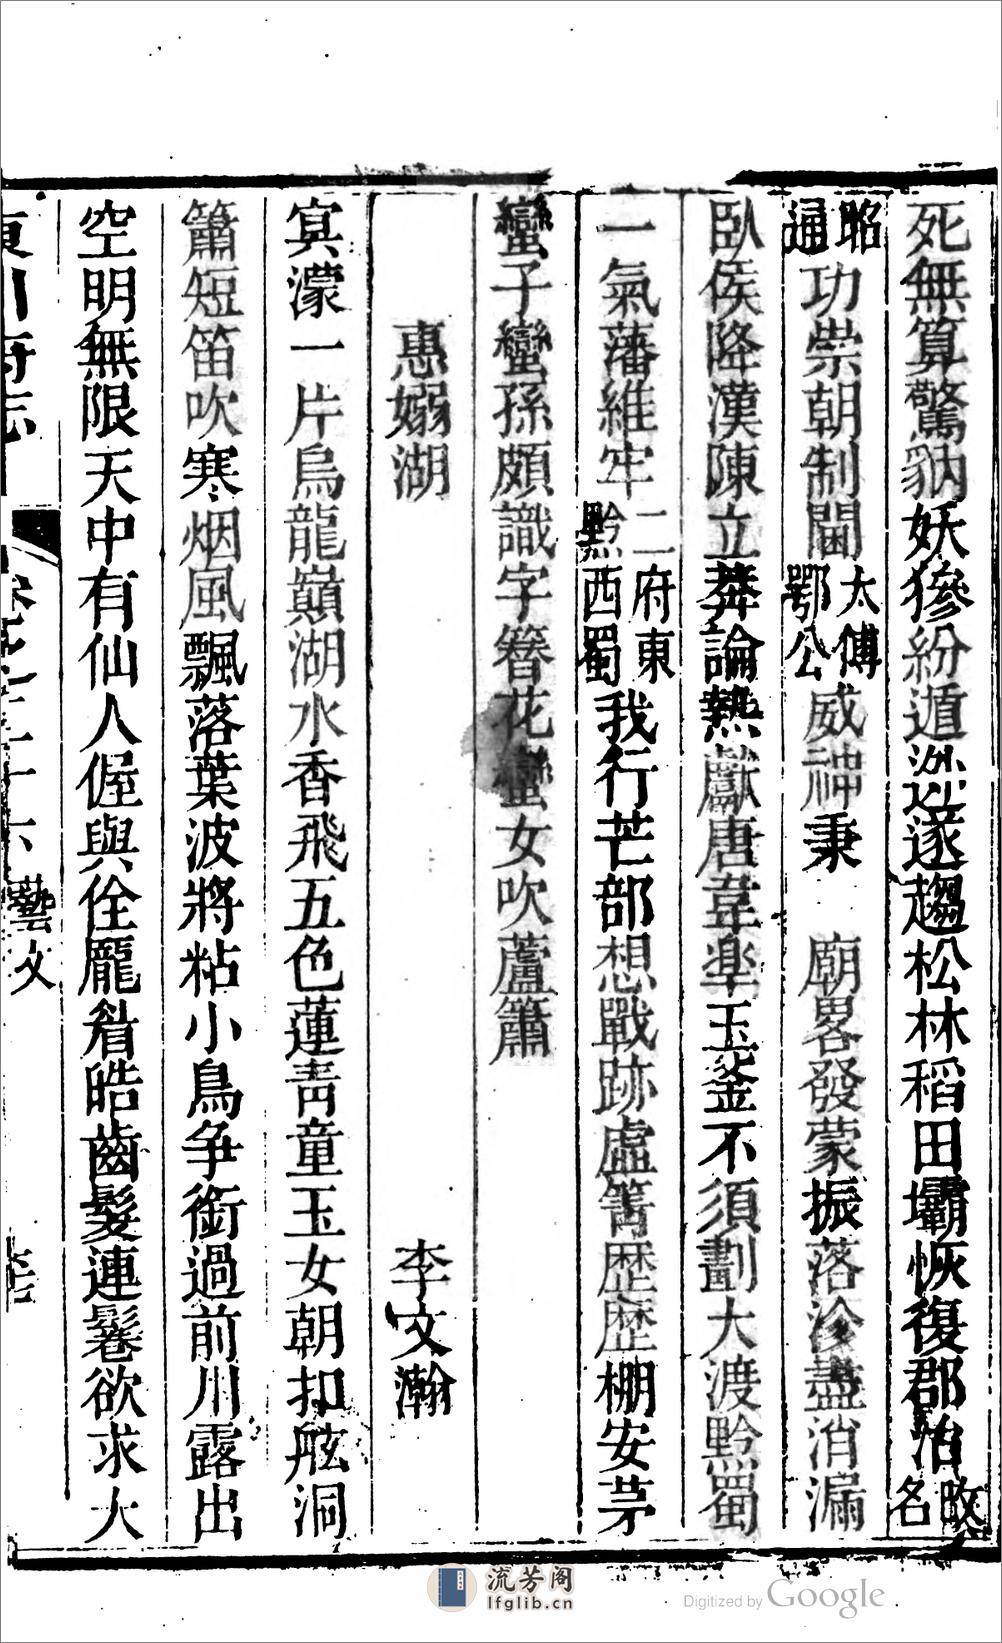 死無算驚豽妖獠紛遁迯遂趨松林稻田壩恢復郡治改名
昭通功崇朝制閫太傅鄂公威神秉 廟畧發蒙振落沴盡消漏
臥侯降漢陳立莽論熱獻唐韋皐玉釜不須劃大渡黔蜀
一氣藩維牢二府東黔西蜀我行芒部想戰跡虛箐歷歷棚安茅
蠻子蠻孫頗識字簪花蠻女吹蘆簫
惠嫋湖 李文瀚
㝠濛一片烏龍巔湖水香飛五色蓮靑童玉女朝扣舷洞
簫短笛吹寒烟風飄落葉波將粘小鳥争銜過前川露出
空明無限天中有仙人偓與佺龎眉皓齒髮連鬈欲求大
東川府志 卷之二十六 藝文
流芳阁
lfglib.cn
Digitized by Google